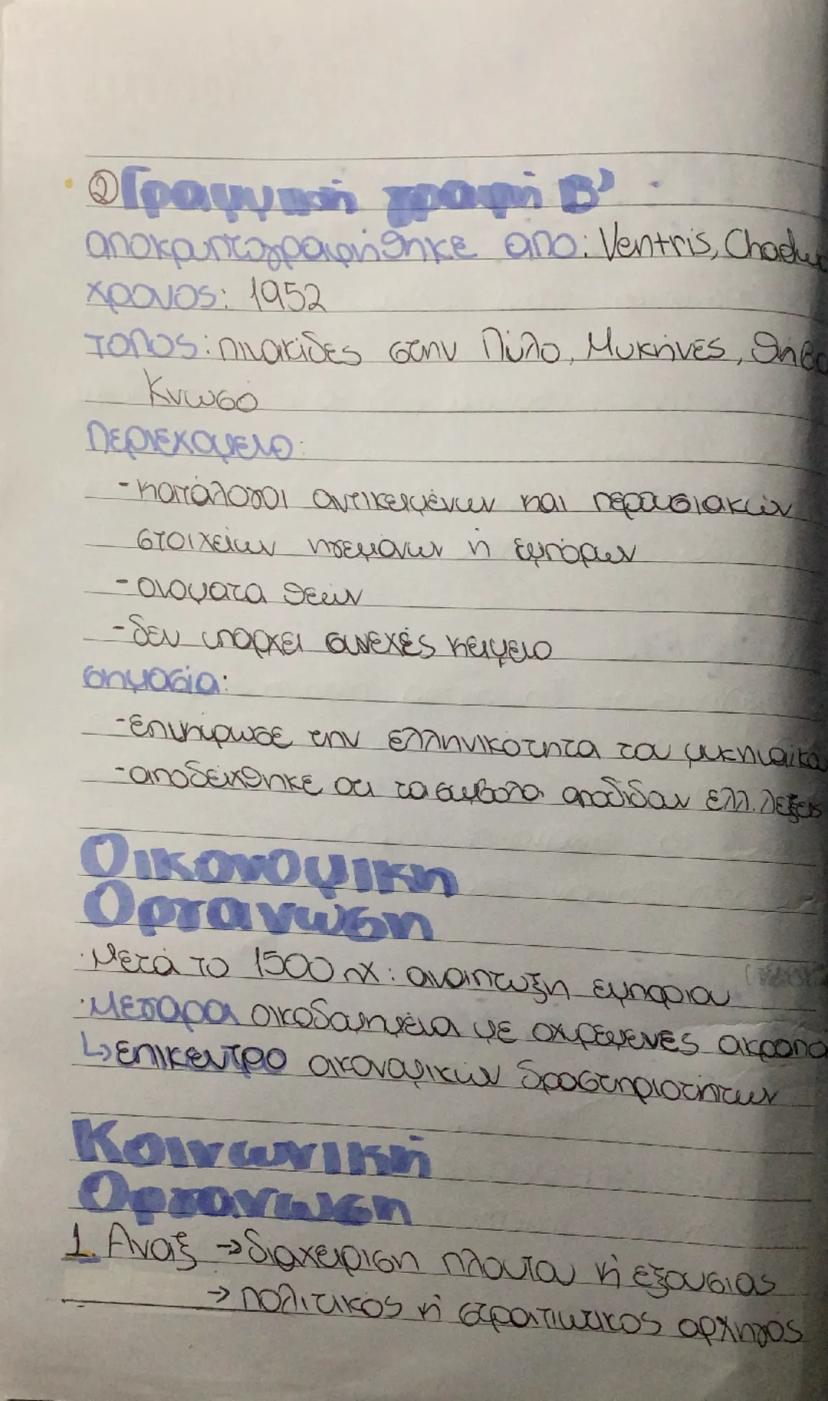 ② Γραμμική γραφή Β'
αποκρυπτογραφήθηκε από: Ventris, Chadw
χρονος: 1952
τοπος: πινακίδες στην Πύλο, Μυκήνες, Θήβα
Κνωσό
Περιεχομενο:
- κατάλογοι αντικειμένων και περουσιακών
στοιχείων ηγεμόνων ή εμπόρων
- ονοματα θεών
- δεν υπαρχει συνεχές κειμενο
σημασία:
- επικύρωσε την ελληνικότητα του μυκηναϊκο
- αποδείχθηκε οτι τα συμβολα αποδιδαν ελλ. λεξεις
Οικονομικη
Οργανωση
· Μετά το 1500 πΧ: αναπτυξη εμποριου
· Μεγαρα οικοδομημενα με οχυρωμενες ακροπο
↳ επικεντρο οικονομικών δραστηριοτήτων
Κοινωνική
Οργανωση
1. Αναξ → διαχειριση πλουτου ή εξουσιας
→ πολιτικος ή στρατιωτικος αρχηγος